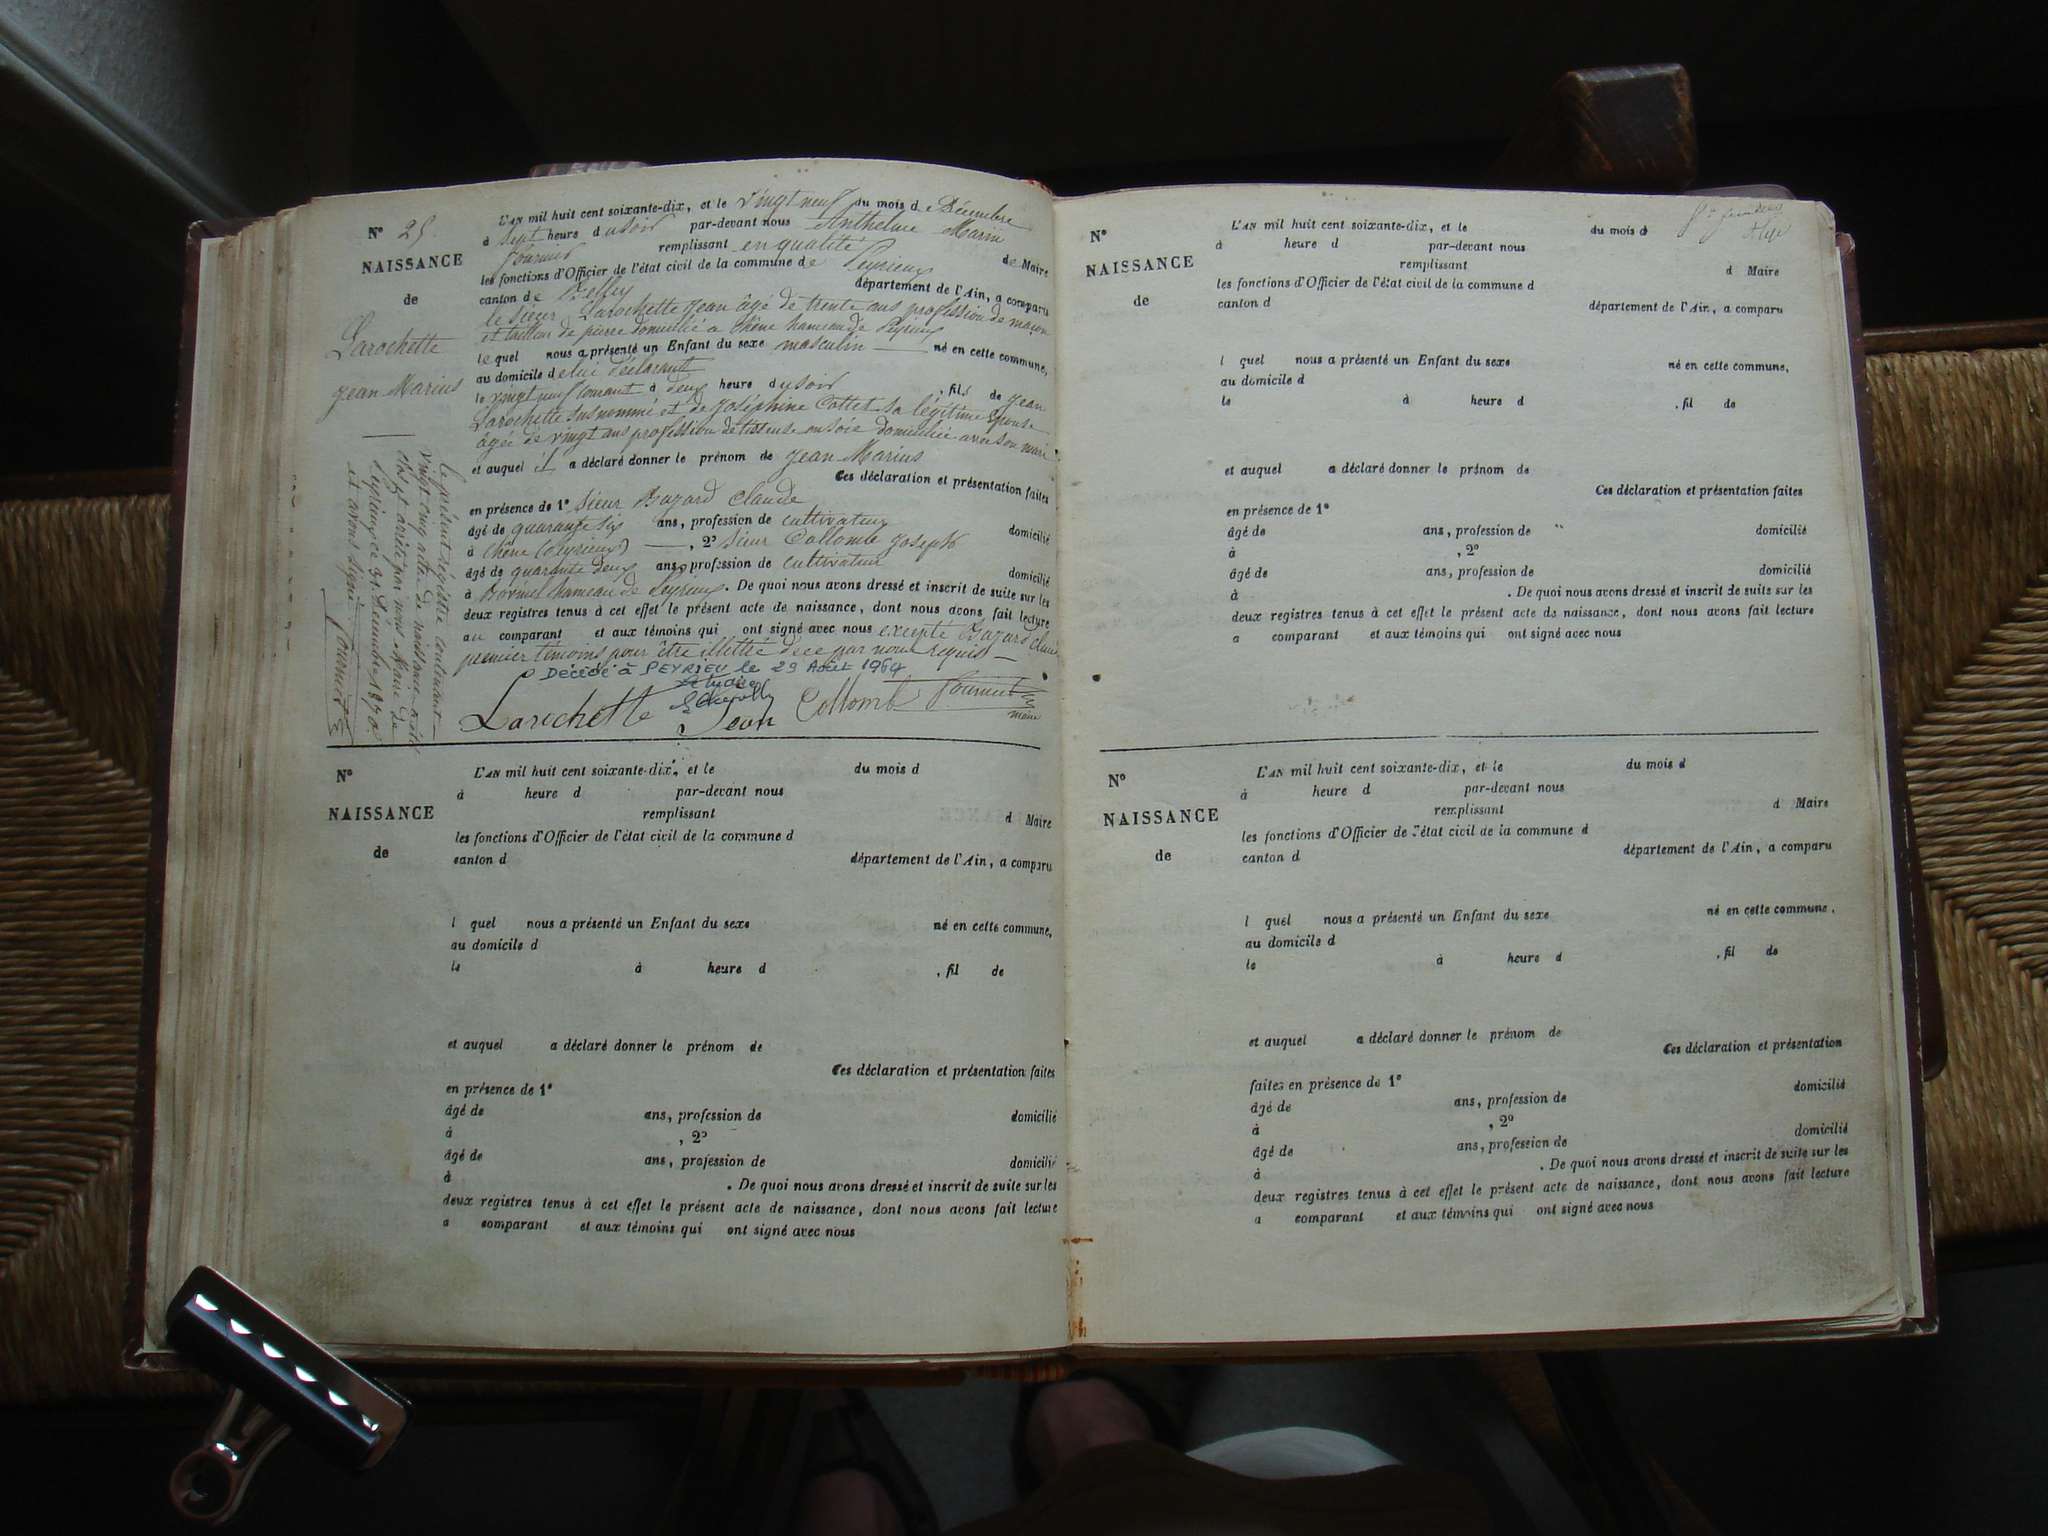 N° 25
NAISSANCE
de
Larochette
Jean Marius
L'AN mil huit cent soixante-dix, et le vingt neuf du mois de Décembre
à sept heure du soir par-devant nous Anthelme Marin
Fournier remplissant en qualité de Maire
les fonctions d'Officier de l'état civil de la commune de Peyrieux
canton de Belley département de l'Ain, a comparu
le sieur Larochette Jean âgé de trente ans profession de maçon
et tailleur de pierre domicilié à Chêne hameau de Peyrieux
le quel nous a présenté un Enfant du sexe masculin né en cette commune,
au domicile de lui déclarant
le vingt neuf courant à deux heure du soir , fils de Jean
Larochette susnommé et de Joséphine Cottet sa légitime épouse
âgée de vingt ans profession de tisseuse en soie domiciliée avec son mari
et auquel il a déclaré donner le prénom de Jean Marius
Ces déclaration et présentation faites
en présence de 1° sieur Bazard Claude
âgé de quarante six ans, profession de cultivateur domicilié
à Chêne (Peyrieux) , 2° sieur Collomb Joseph
âgé de quarante deux ans, profession de cultivateur domicilié
à hameau de Peyrieux. De quoi nous avons dressé et inscrit de suite sur les
deux registres tenus à cet effet le présent acte de naissance, dont nous avons fait lecture
au comparant et aux témoins qui ont signé avec nous excepté Bazard Claude
premier témoins pour être illettré de ce par nous requis
Décédé à PEYRIEU le 29 Août 1964
Larochette Jean Collomb Fournier
maire
le présent registre contenant
vingt cinq actes de naissance a été
clos et arrêté par nous Maire de
Peyrieux ce 31 Décembre 1870.
et avons signé Fournier
N°
NAISSANCE
de
L'AN mil huit cent soixante-dix, et le du mois d
à heure d par-devant nous
remplissant d Maire
les fonctions d'Officier de l'état civil de la commune d
canton d département de l'Ain, a comparu
l quel nous a présenté un Enfant du sexe né en cette commune,
au domicile d
le à heure d , fil de
et auquel a déclaré donner le prénom de
Ces déclaration et présentation faites
en présence de 1°
âgé de ans, profession de domicilié
à , 2°
âgé de ans, profession de domicilié
à . De quoi nous avons dressé et inscrit de suite sur les
deux registres tenus à cet effet le présent acte de naissance, dont nous avons fait lecture
a comparant et aux témoins qui ont signé avec nous
N°
NAISSANCE
de
L'AN mil huit cent soixante-dix, et le du mois d
à heure d par-devant nous
remplissant d Maire
les fonctions d'Officier de l'état civil de la commune d
canton d département de l'Ain, a comparu
l quel nous a présenté un Enfant du sexe né en cette commune,
au domicile d
le à heure d , fil de
et auquel a déclaré donner le prénom de
Ces déclaration et présentation faites
en présence de 1°
âgé de ans, profession de domicilié
à , 2°
âgé de ans, profession de domicilié
à . De quoi nous avons dressé et inscrit de suite sur les
deux registres tenus à cet effet le présent acte de naissance, dont nous avons fait lecture
a comparant et aux témoins qui ont signé avec nous
N°
NAISSANCE
de
L'AN mil huit cent soixante-dix, et le du mois d
à heure d par-devant nous
remplissant d Maire
les fonctions d'Officier de l'état civil de la commune d
canton d département de l'Ain, a comparu
l quel nous a présenté un Enfant du sexe né en cette commune,
au domicile d
le à heure d , fil de
et auquel a déclaré donner le prénom de
Ces déclaration et présentation
faites en présence de 1° domicilié
âgé de ans, profession de
à , 2° domicilié
âgé de ans, profession de
à . De quoi nous avons dressé et inscrit de suite sur les
deux registres tenus à cet effet le présent acte de naissance, dont nous avons fait lecture
a comparant et aux témoins qui ont signé avec nous